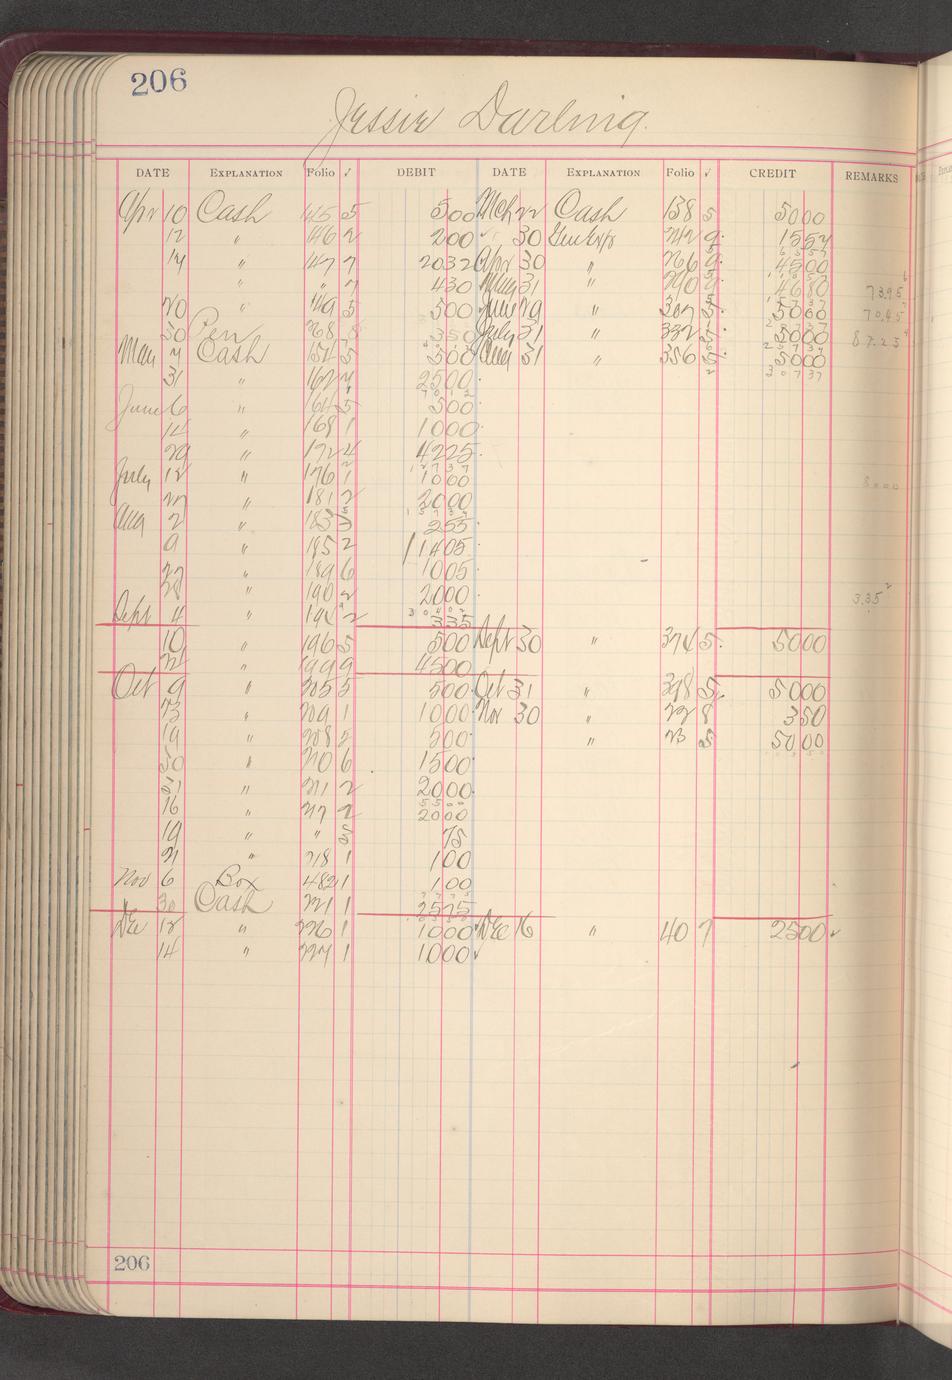 206
Jessie Darling.
DATE EXPLANATION Folio ✓ DEBIT DATE EXPLANATION Folio ✓ CREDIT REMARKS
Apr 10 Cash 145 5 500 Mch 22 Cash 138 5 5000
12 " 146 2 200 30 242 9 1557
14 " 147 7 2032 Apr 30 " 266 9 4500
" " 7 430 May 31 " 290 9 4680 7395
20 " 149 5 500 June 29 " 307 5 5000 7045
30 268 8 350 July 31 " 332 5000 8725
May 7 Cash 154 5 500 Aug 31 " 356 5000
3 0 7 37
31 " 162 2500
June 6 " 164 5 500
14 " 168 1 1000
29 " 172 4 4225
1 2 7 3 7
July 12 " 176 1 1000 8000
27 " 181 2 2000
Aug 2 " 183 255
9 " 185 2 1405
27 " 189 6 1005
28 " 190 2 2000 335
3 0 4 0 2
Sept 4 " 194 2 335
10 " 196 5 500 Sept 30 " 374 5 5000
" 199 9 4500
Oct 9 " 205 5 500 Oct 31 " 398 5 5000
13 " 209 1 1000 Nov 30 " 22 8 350
19 " 208 5 500 " 23 5000
30 " 210 6 1500
31 " 211 2 2000
5 5 0 0
16 " 217 2 2000
19 " " 5 75
21 " 218 1 100
Nov 6 Box 482 1 100
30 Cash 221 1 2575
Dec 12 " 226 1 1000 Dec 16 " 40 7 2500 ✓
14 " 227 1 1000 ✓
206